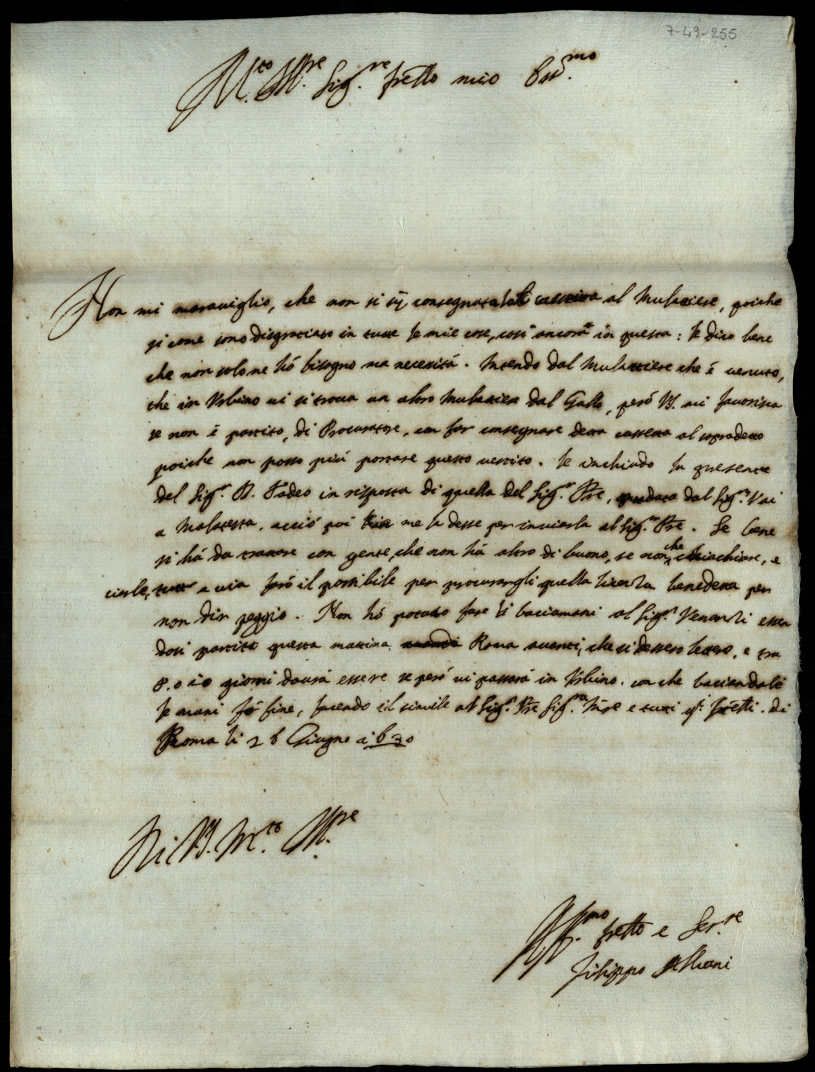 7-49-255
M.to Ill.re Sig.re frello mio Oss.mo
Non mi maraviglio, che non si sij consegnata la cassetta al Mulattiere, poiche
si come sono disgratiato in tutte le mie cose, così ancora in questa: le dico bene
che non solo ne hó bisogno ma necessitá. Intendo dal Mulattiere che é venuto,
che in Urbino vi si trova un altro Mulattiere dal Gallo, peró VS. mi favorisca
se non é partito, di Procurare, con far consegnare detta cassetta al sopradetto
poiche non posso piú portare questo vestito. Le inchiudo la presente
del Sig.r D. Tadeo in risposta di quella del Sig.r Pre, dal Sig.r
a Malatesta, acció poi me la desse per inviarla al Sig.r Pre. Se bene
si há da trattare con gente, che non há altro di buono, se non che chiachiare, e
tutta via faró il possibile per procurargli quella licenza benedetta per
non dir peggio. Non hó potuto fare li baciamani al Sig.r Venanzi essen
dosi partito questa mattina Roma avanti, che si dessero lettere, e tra
8. o 10 giorni dovrá essere se peró vi passerá in Urbino. con che baciandole
le mani fó fine, facendo il simile al Sig.r Pre Sig.ra Mre e tutti q.i frelli. di
Roma li 26 Giugno 1630
Di VS. M.to Ill.re
Aff.mo frello e Ser.re
Filippo Albani